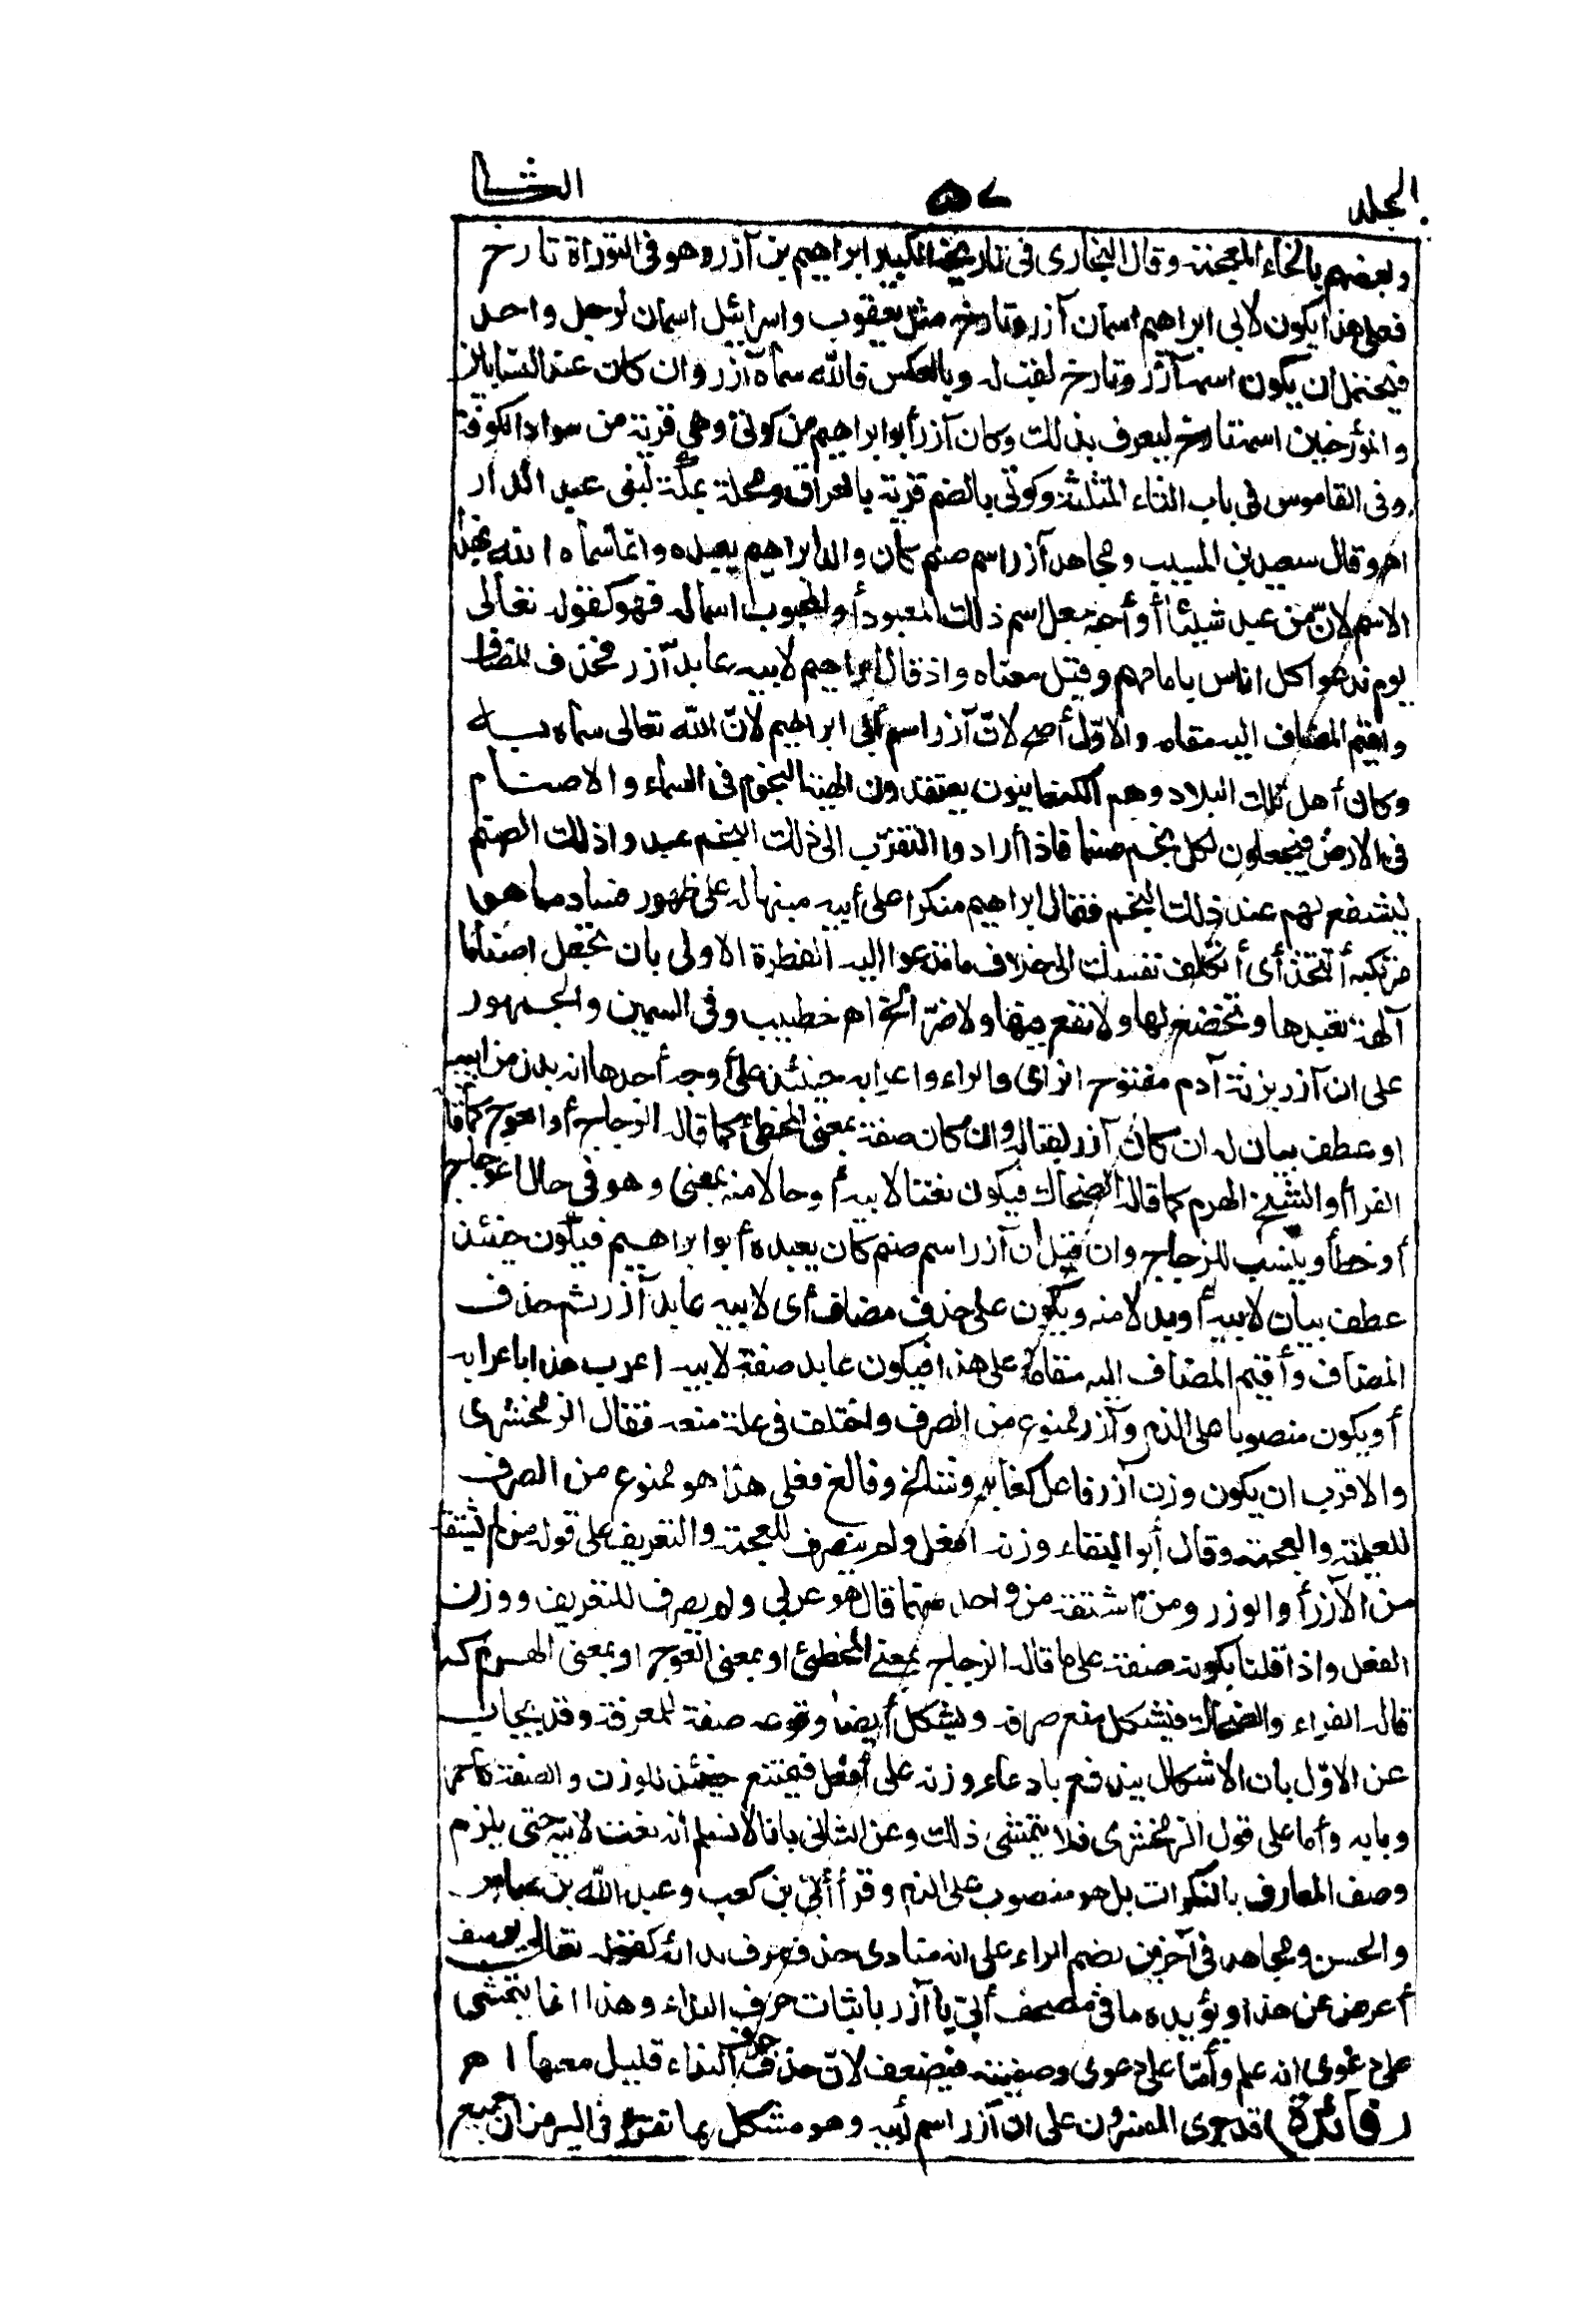 الجلد ٥٧ الثا
وبعضهم بالخاء المعجمة وقال البخارى فى تاريخه الكبير ابراهيم بن آزر وهو فى التوراة تارخ
فعلى هذا يكون لابى ابراهيم اسمان آزر وتارخ مثل يعقوب واسرائيل اسمان لرجل واحد
فيحتمل ان يكون اسمه آزر وتارخ لقب له وبالعكس فالله سماه آزر وان كان عند النسابين
والمؤرخين اسمه تارخ ليعرف بذلك وكان آزر أبو ابراهيم من كوثى وهى قرية من سواد الكوفة
وفى القاموس فى باب الثاء المثلثة وكوثى بالضم قرية بالعراق ومحلة بمكة لبنى عبد الدار
اهـ وقال سعيد بن المسيب ومجاهد آزر اسم صنم كان والد ابراهيم يعبده وانما سماه الله بهذا
الاسم لانّ من عبد شيئا أو أحبه جعل اسم ذلك المعبود أو المحبوب اسما له فهو كقوله تعالى
يوم ندعوا كل اناس بامامهم وقيل معناه واذ قال ابراهيم لابيه عابد آزر فحذف المضاف
وأقيم المضاف اليه مقامه والاوّل أصح لانّ آزر اسم أبى ابراهيم لانّ الله تعالى سماه به
وكان أهل تلك البلاد وهم الكنعانيون يعتقدون الهية النجوم فى السماء والاصنام
فى الارض فيجعلون لكل نجم صنما فاذا أرادوا التقرّب الى ذلك النجم عبدوا ذلك الصنم
ليشفع لهم عند ذلك النجم فقال ابراهيم منكرا على أبيه منبها له على ظهور فساد ما هو
مرتكبه أتتخذ أى أتكلف نفسك الى خلاف ما تدعوا اليه الفطرة الاولى بان تجعل اصناما
آلهة تعبدها وتخضع لها ولا نفع فيها ولا ضرّ الخ اهـ خطيب وفى السمين والجمهور
على ان آزر بزنة آدم مفتوح الزاى والراء واعرابه حينئذ على أوجه أحدها انه بدل من ابيه
او عطف بيان له ان كان آزر لقبا له وان كان صفة بمعنى المخطئ كما قاله الزجاج أو المعوج كما قاله
الفرا أو الشيخ الهرم كما قاله الضحاك فيكون نعتا لابيه أو حالا منه بمعنى وهو فى حال اعوجاج
أو خطأ وينسب للزجاج وان قيل ان آزر اسم صنم كان يعبده أبو ابراهيم فيكون حينئذ
عطف بيان لابيه أو بدلا منه ويكون على حذف مضاف أى لابيه عابد آزر ثم حذف
المضاف وأقيم المضاف اليه مقامه على هذا فيكون عابد صفة لابيه اعرب هذا باعرابه
أو يكون منصوبا على الذم وآزر ممنوع من الصرف واختلف فى علة منعه فقال الزمخشرى
والاقرب ان يكون وزن آزر فاعل كعابر وشالخ وفالغ فعلى هذا هو ممنوع من الصرف
للعلمية والعجمة وقال أبو البقاء وزنه افعل ولم ينصرف للعجمة والتعريف على قول من لم يشتقه
من الآزر أو الوزر ومن اشتقه من واحد منهما قال هو عربى ولم يصرف للتعريف ووزن
الفعل واذا قلنا بكونه صفة على ما قاله الزجاج بمعنى المخطئ او بمعنى المعوج او بمعنى الهرم كما
قاله الفراء والضحاك فيشكل منع صرفه ويشكل أيضا وقوعه صفة للمعرفة وقد يجاب
عن الاوّل بان الاشكال يندفع بادعاء وزنه على أفعل فيمتنع حينئذ للوزن والصفة كأحمر
وبابه وأما على قول الزمخشرى فلا يتمشى ذلك وعن الثانى بانا لا نسلم أنه نعت لابيه حتى يلزم
وصف المعارف بالنكرات بل هو منصوب على الذم وقرأ أبىّ بن كعب وعبد الله بن عباس
والحسن ومجاهد فى آخرين بضم الراء على انه منادى حذف حرف ندائه كقوله تعالى يوسف
أعرض عن هذا ويؤيده ما فى مصحف أبىّ يا آزر باثبات حرف النداء وهذا انما يتمشى
على دعوى انه علم وأمّا على دعوى وصفيته فيضعف لانّ حذف حرف النداء قليل معها اهـ
(فائدة) قد جرى المفسرون على ان آزر اسم أبيه وهو مشكل بما تقرّر فى السير من ان جميع